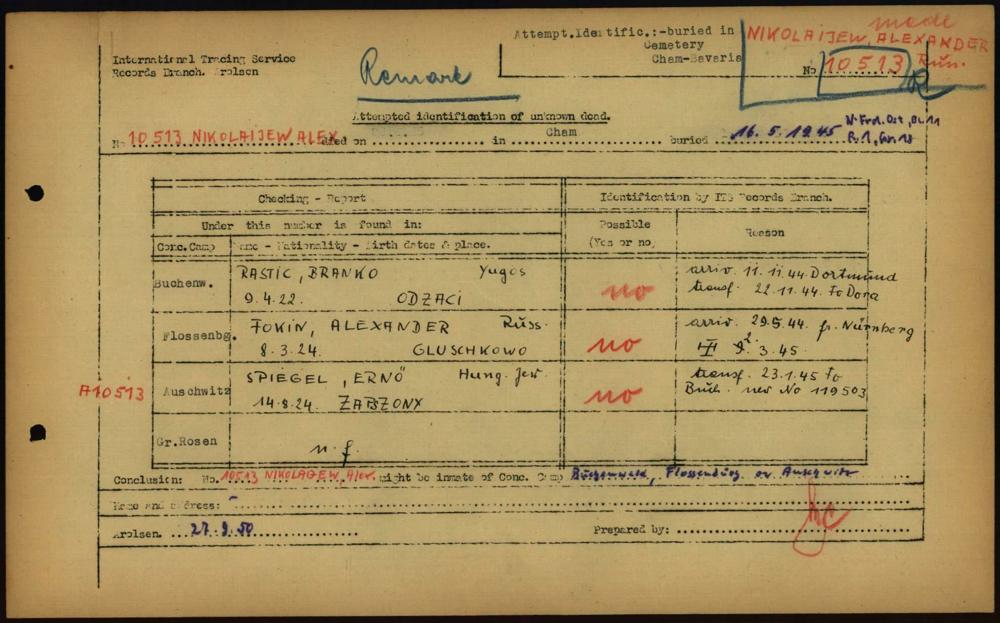 made
Attempt.Identific.:-buried in
Cemetery
Cham-Bavaria
NIKOLAIJEW, ALEXANDER
No 10513 Russ.
International Tracing Service
Records Branch. Arolsen
Remark
Attempted identification of unknown dead.
No 10513 NIKOLAIJEW ALEX. died on .......... in Cham buried 16.5.1945
RASTIC, BRANKO Yugos
Checking - Report
Identification by ITS Records Branch.
Under this number is found in:
Possible
(Yes or no)
Reason
Conc.Camp Name - Nationality - Birth dates & place.
Buchenw.
9.4.22. ODZACI
no
arriv. 11.11.44 Dortmund
transf. 22.11.44. to Dora
Flossenbg.
FOKIN, ALEXANDER Russ.
8.3.24. GLUSCHKOWO
no
arriv. 29.5.44. fr. Nürnberg
3.45.
A10513
Auschwitz
SPIEGEL, ERNÖ Hung. Jew.
14.8.24. ZABZONX
no
transf. 23.1.45 to
Buch. new No 119503
Gr.Rosen
n.f.
Conclusion: No. 10513 NIKOLAIJEW Alex. might be inmate of Conc. Camp Buchenwald, Flossenbürg or Auschwitz
Name and address: -
Arolsen. 27.9.50
Prepared by: